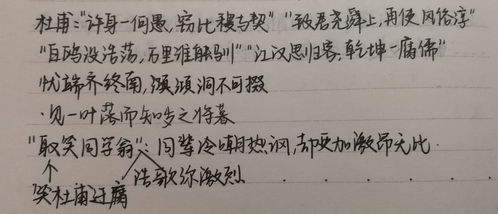 杜甫:"许身一何愚,窃比稷与契" "致君尧舜上,再使风俗淳"
"白鸥没浩荡,万里谁能驯" "江汉思归客,乾坤一腐儒"
忧端齐终南,澒洞不可掇
·见一叶落而知岁之将暮
"取笑同学翁":同辈冷嘲热讽,却更加激昂无比.
笑杜甫迂腐 浩歌弥激烈